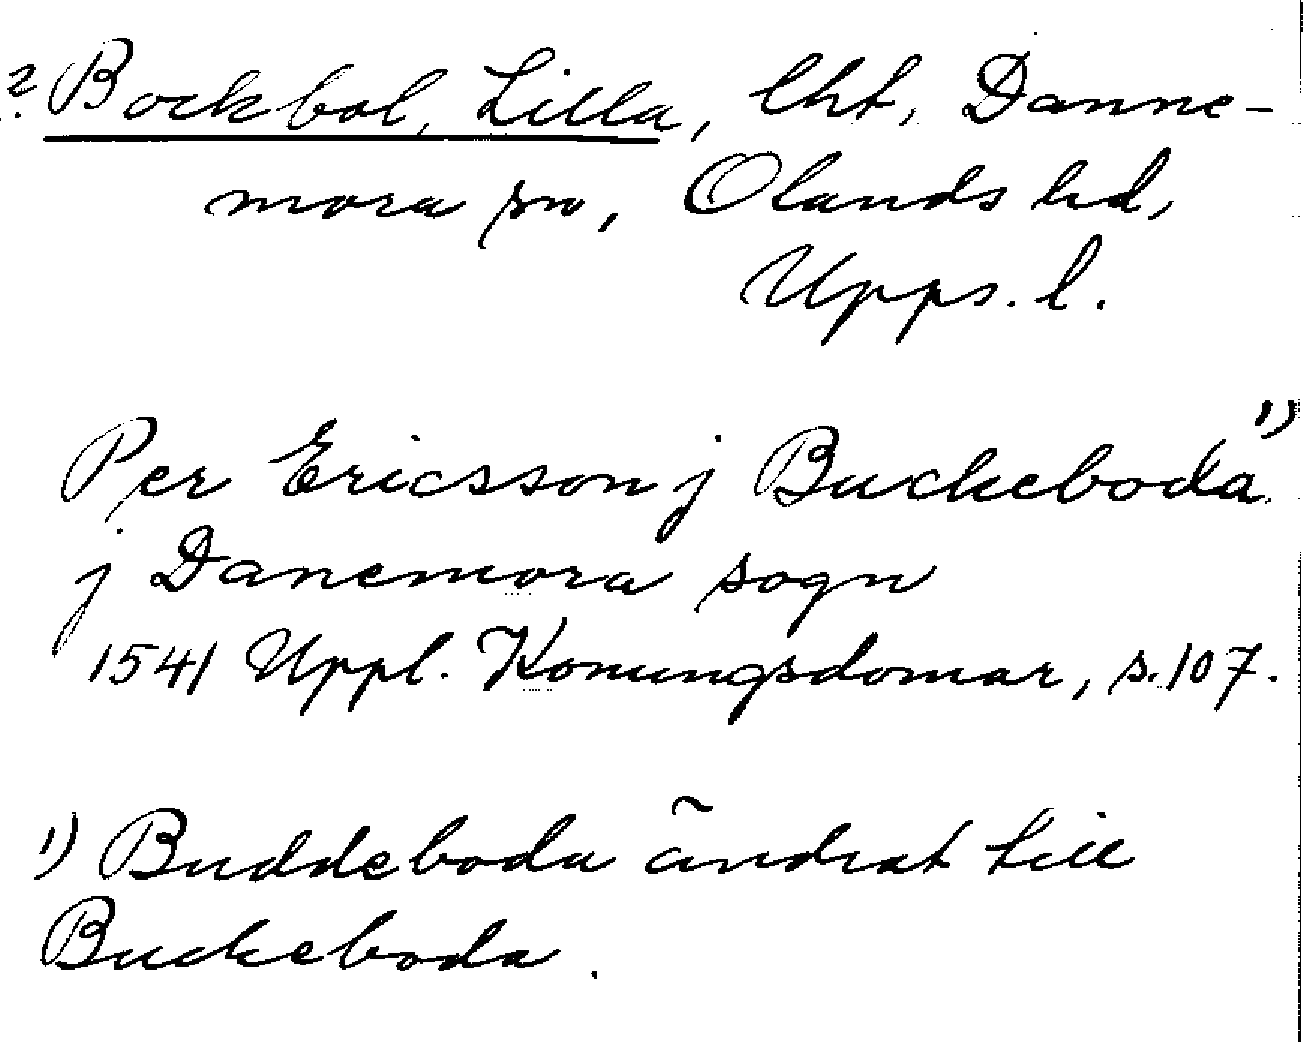 ? Bockbol, Lilla, lht, Danne-
mora sn, Olands hd,
Upps. l.
Per Ericsson j Buckeboda 1)
j Danemora sogn
1541 Uppl. Konungsdomar, s. 107.
1) Buddeboda ändrat till
Buckeboda.